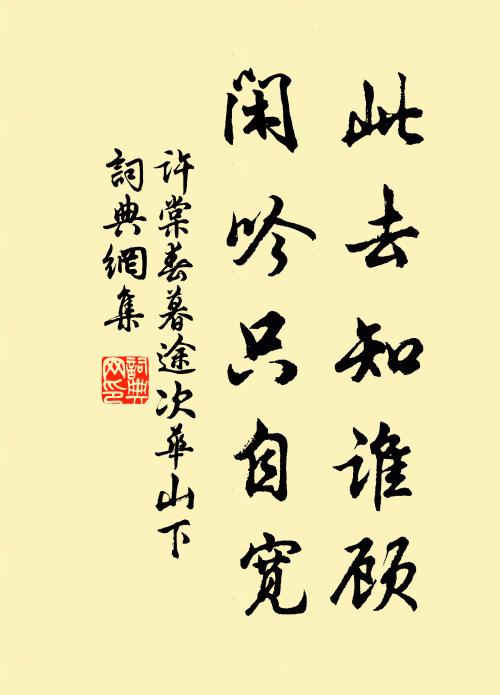 此去知谁顾
闲吟只自宽
許棠春暮途次華山下
詞典網集
詞典
网印